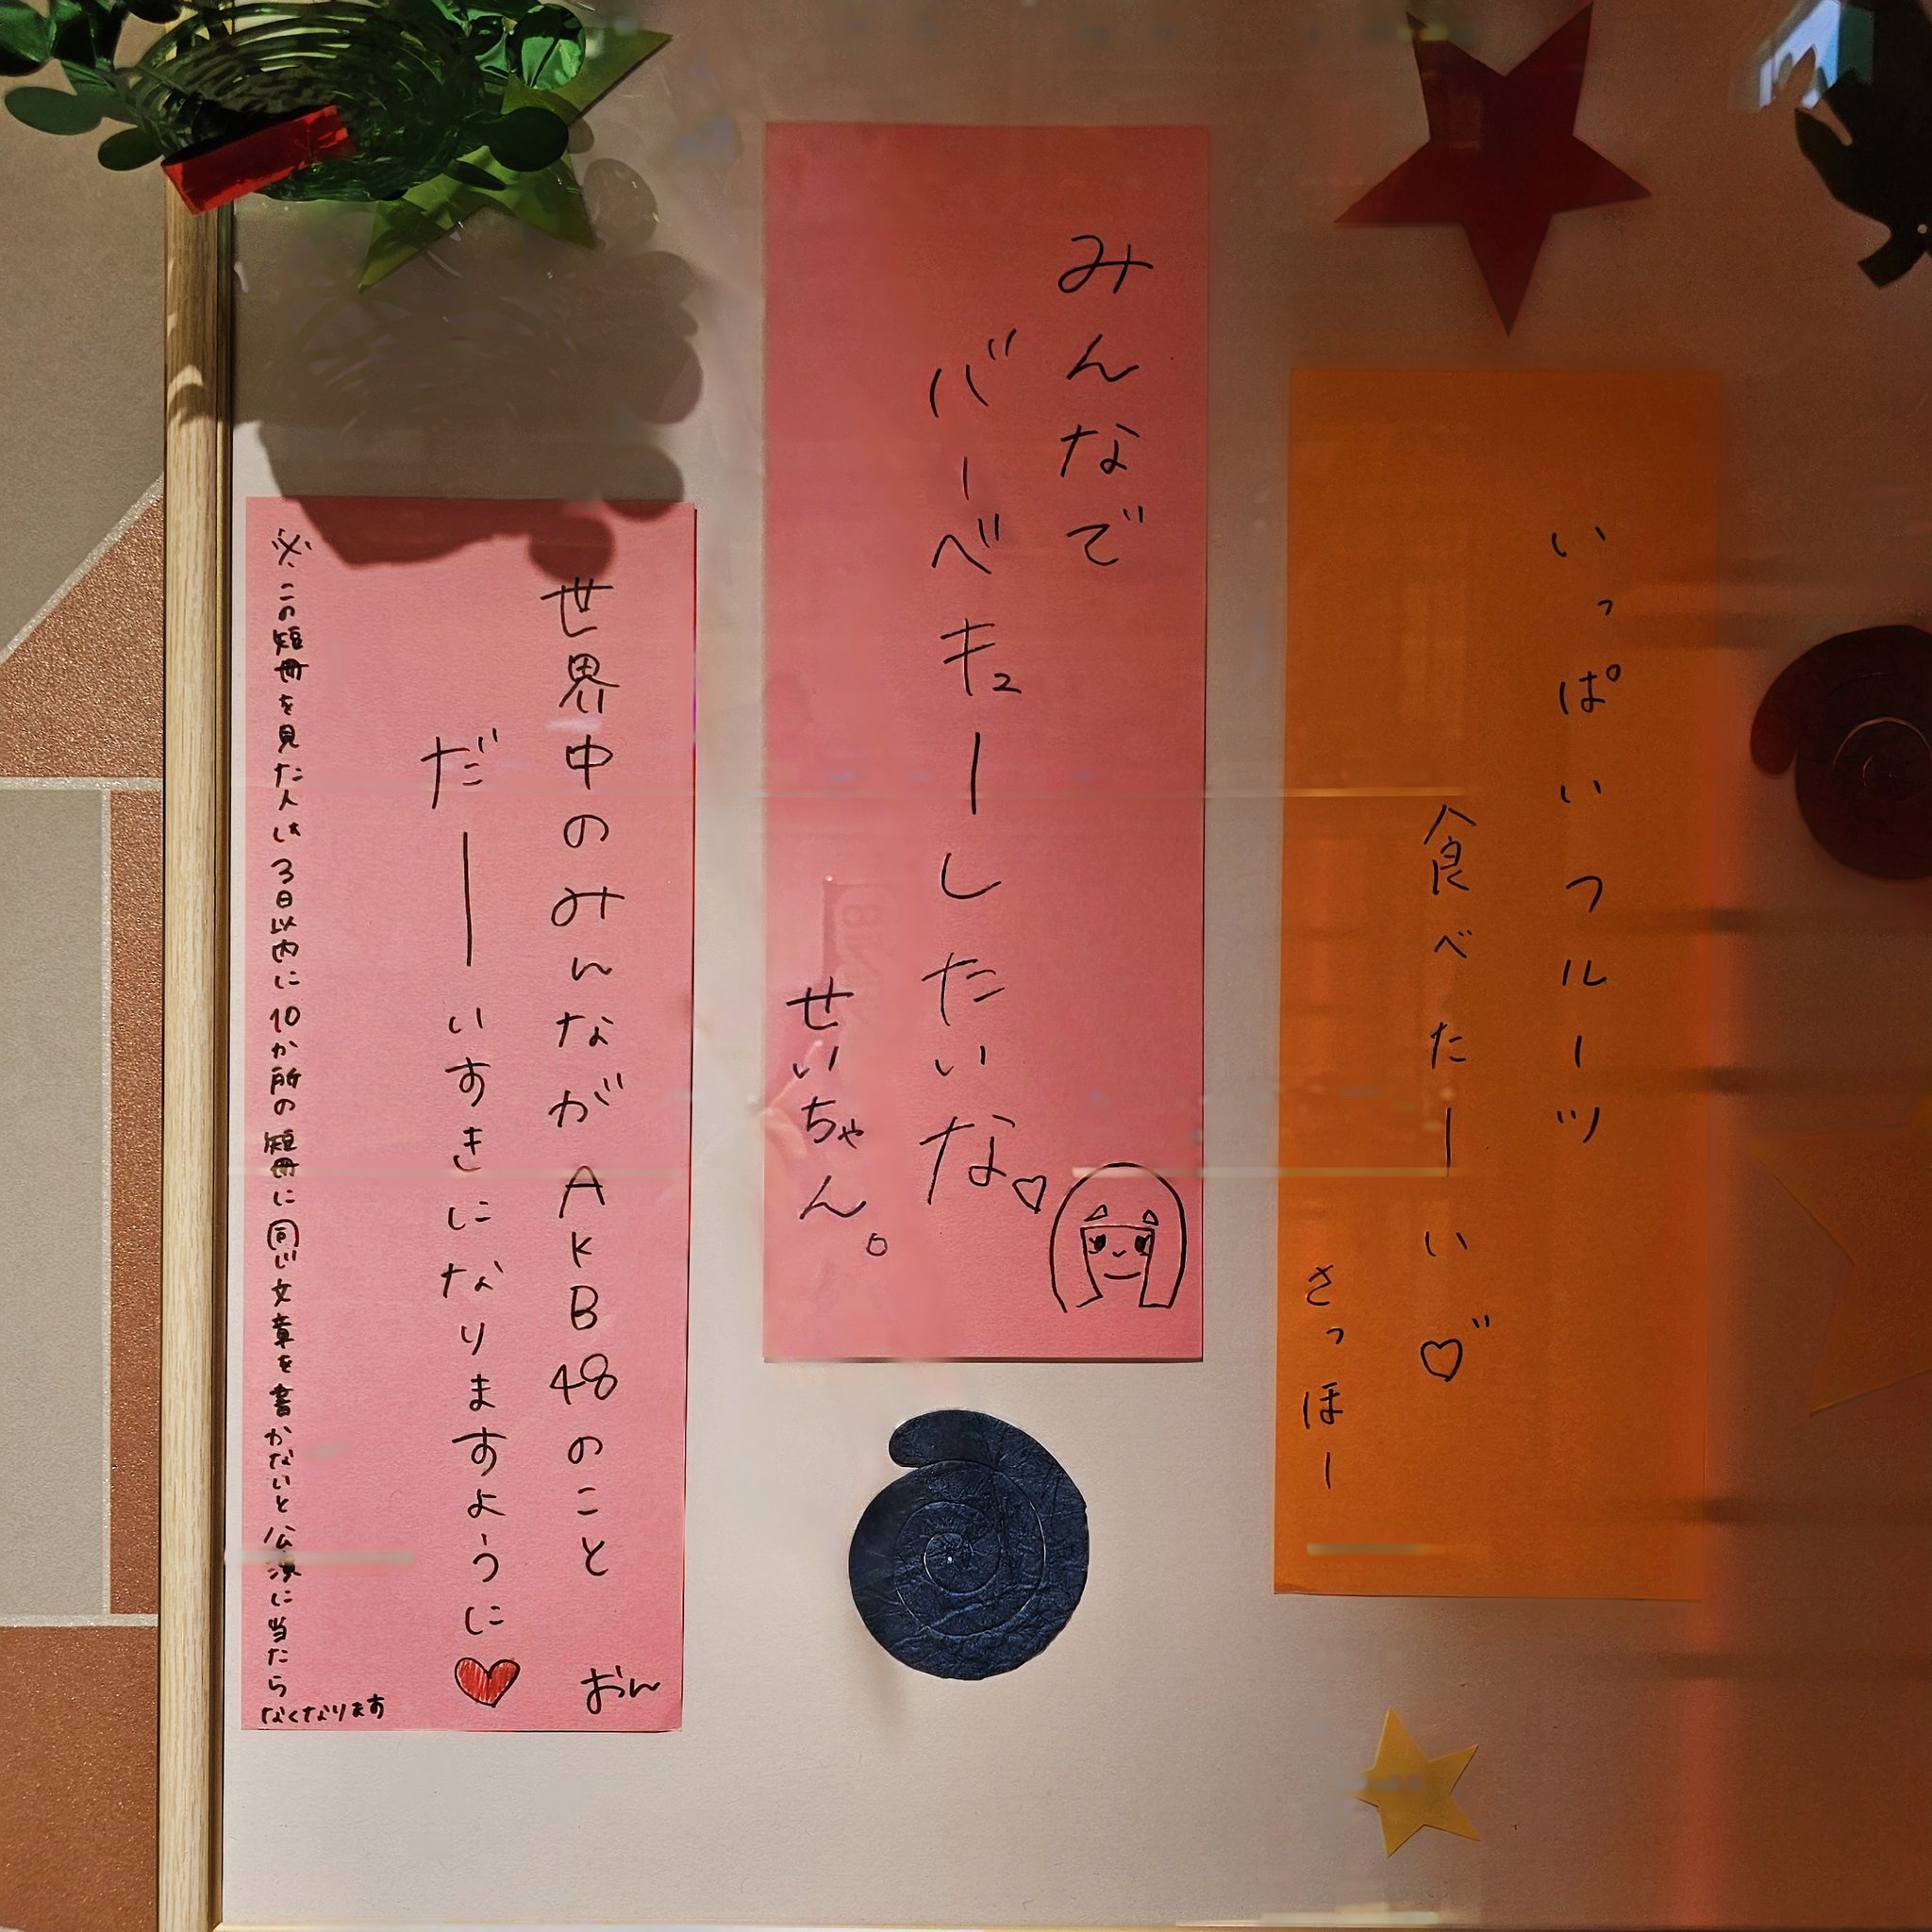 いっぱいフルーツ
食べたーい♡゛
さっほー
みんなで
バーベキューしたいな♡
せいちゃん。
世界中のみんながAKB48のこと
だーいすきになりますように♥
おん
※この短冊を見た人は3日以内に10か所の短冊に同じ文章を書かないと公演に当たら
なくなります